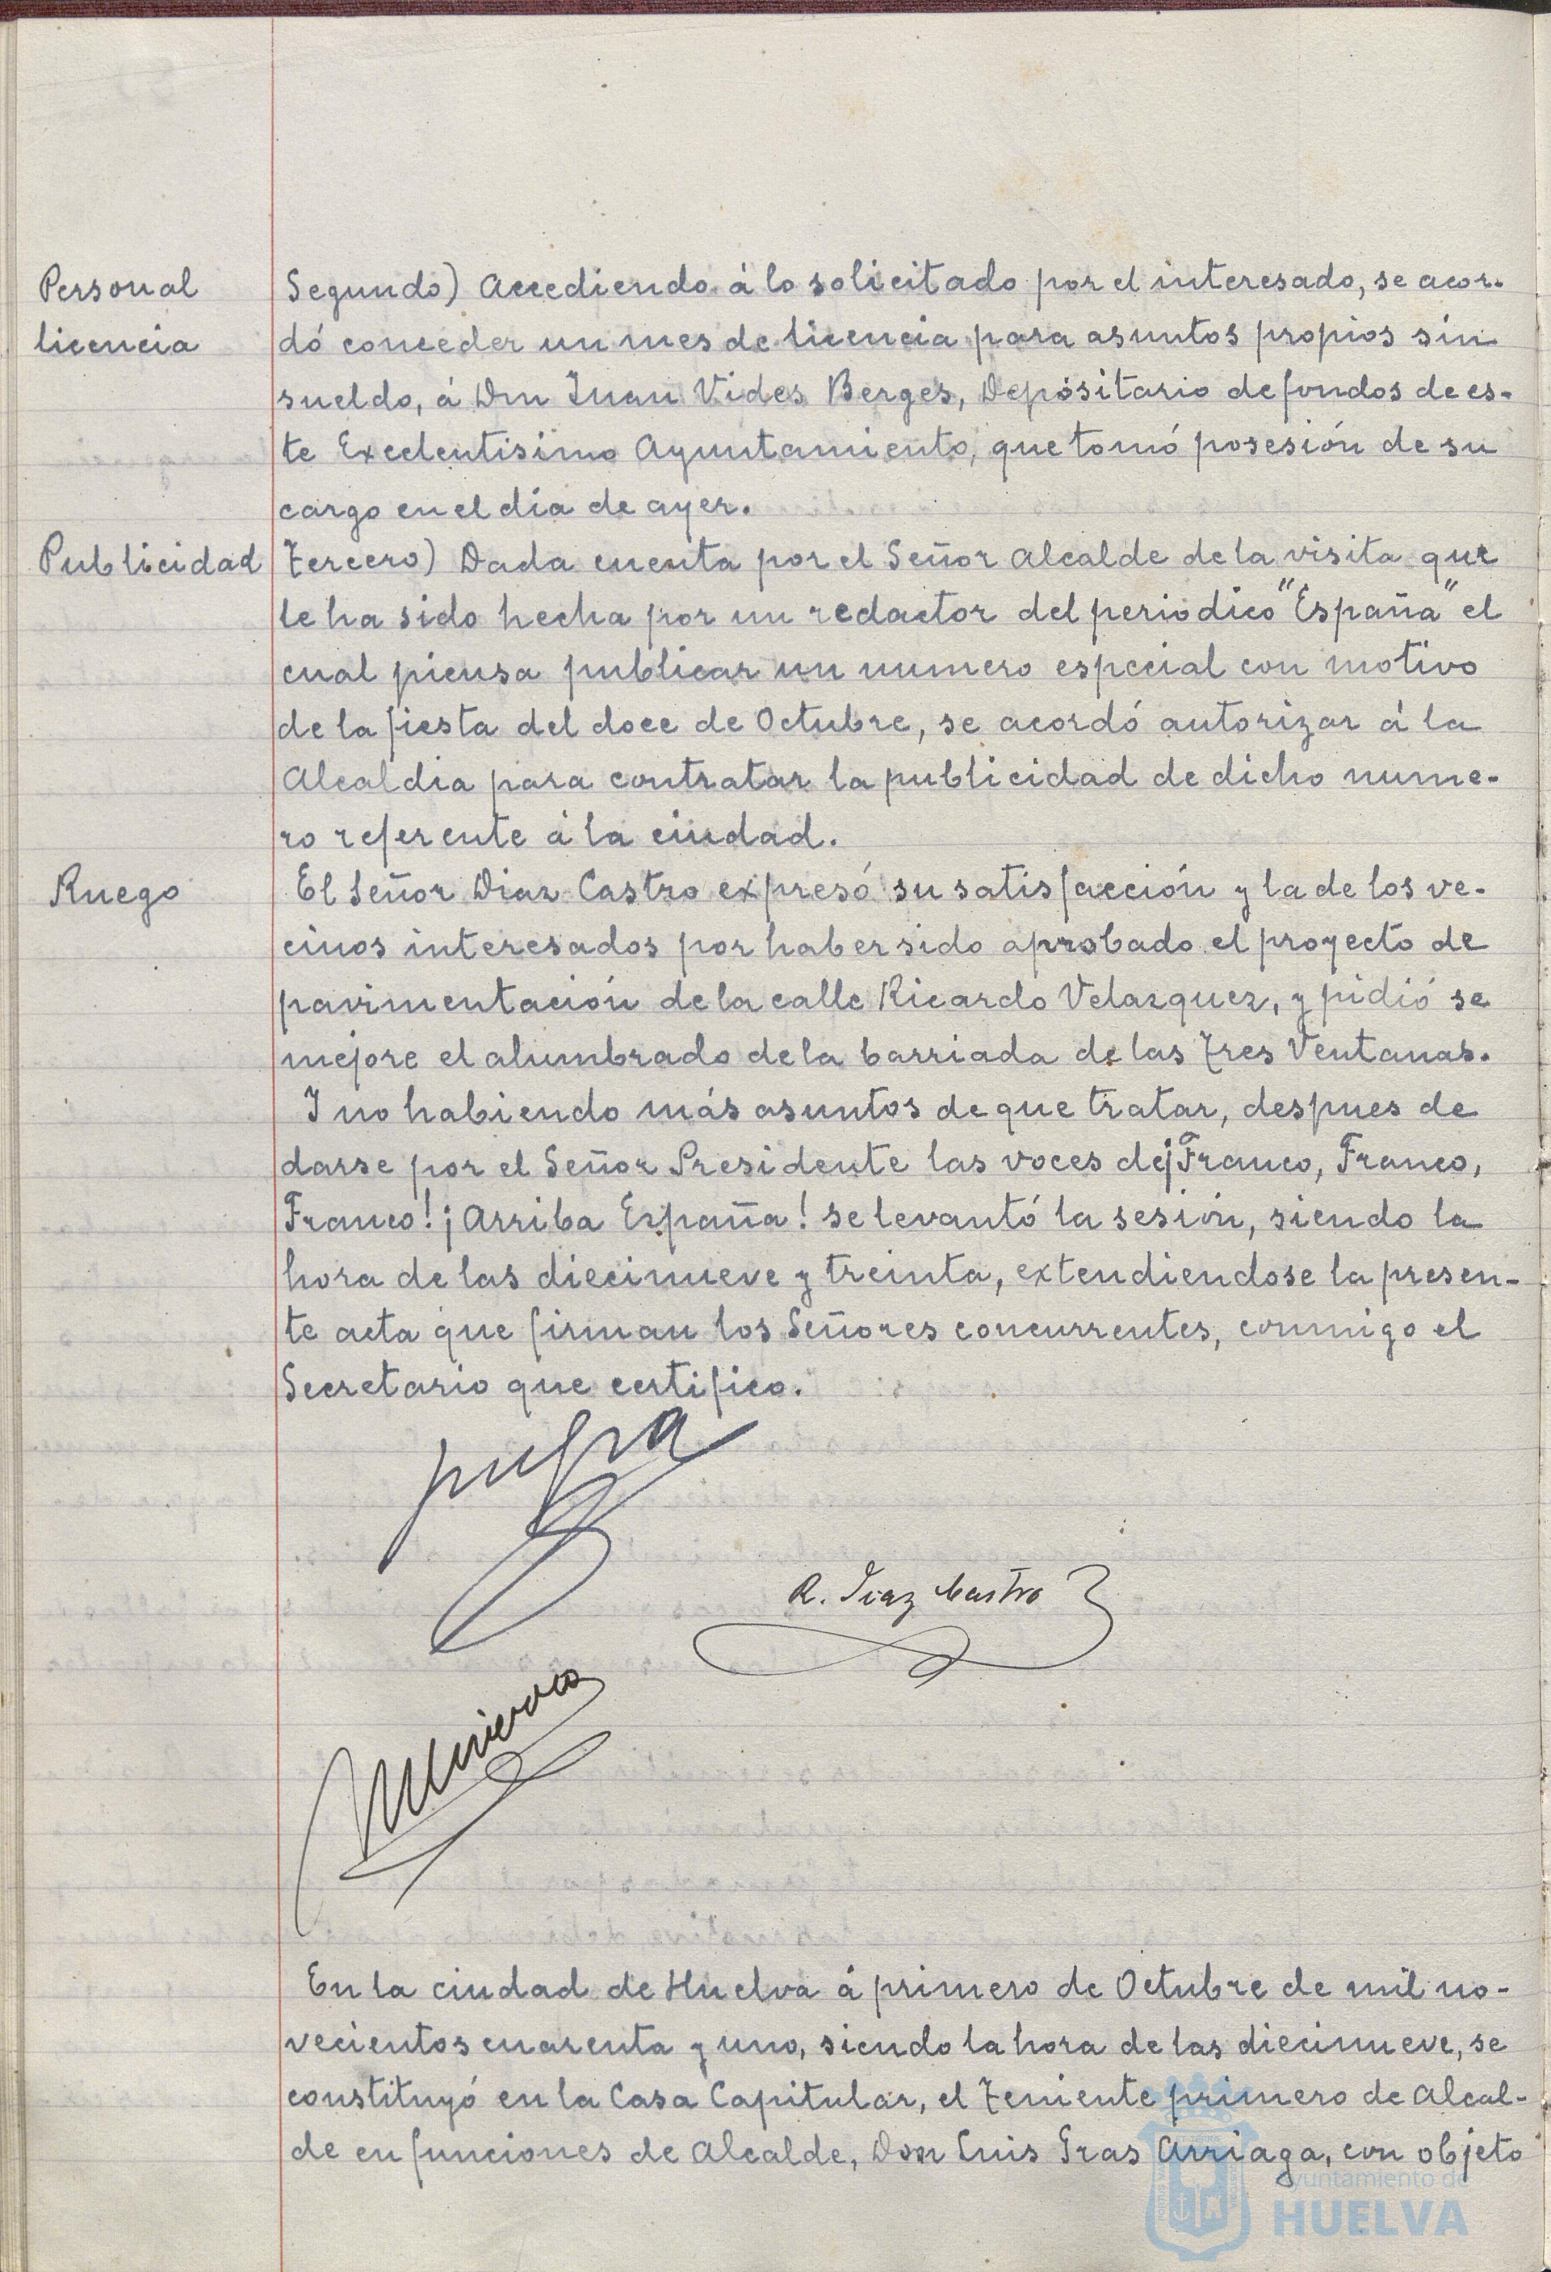 Personal
licencia
Segundo) Accediendo á lo solicitado por el interesado, se acor-
dó conceder un mes de licencia para asuntos propios sin
sueldo, á Don Juan Vides Berges, Depósitario de fondos de es-
te Excelentisimo Ayuntamiento, que tomó posesión de su
cargo en el día de ayer.
Publicidad
Tercero) Dada cuenta por el Señor Alcalde de la visita que
le ha sido hecha por un redactor del periodico "España" el
cual piensa publicar un numero especial con motivo
de la fiesta del doce de Octubre, se acordó autorizar á la
Alcaldia para contratar la publicidad de dicho nume-
ro referente á la ciudad.
Ruego
El Señor Diaz Castro expresó su satisfacción y la de los ve-
cinos interesados por haber sido aprobado el proyecto de
pavimentación de la calle Ricardo Velazquez, y pidió se
mejore el alumbrado de la barriada de las Tres Ventanas.
Y no habiendo más asuntos de que tratar, despues de
darse por el Señor Presidente las voces de ¡Franco, Franco,
Franco! ¡Arriba España! se levantó la sesión, siendo la
hora de las diecinueve y treinta, extendiendose la presen-
te acta que firman los Señores concurrentes, conmigo el
Secretario que certifico.
R. Diaz Castro
En la ciudad de Huelva á primero de Octubre de mil no-
vecientos cuarenta y uno, siendo la hora de las diecinueve, se
constituyó en la Casa Capitular, el Teniente primero de Alcal-
de en funciones de Alcalde, Don Luis Gras Arriaga, con objeto
ayuntamiento de
HUELVA